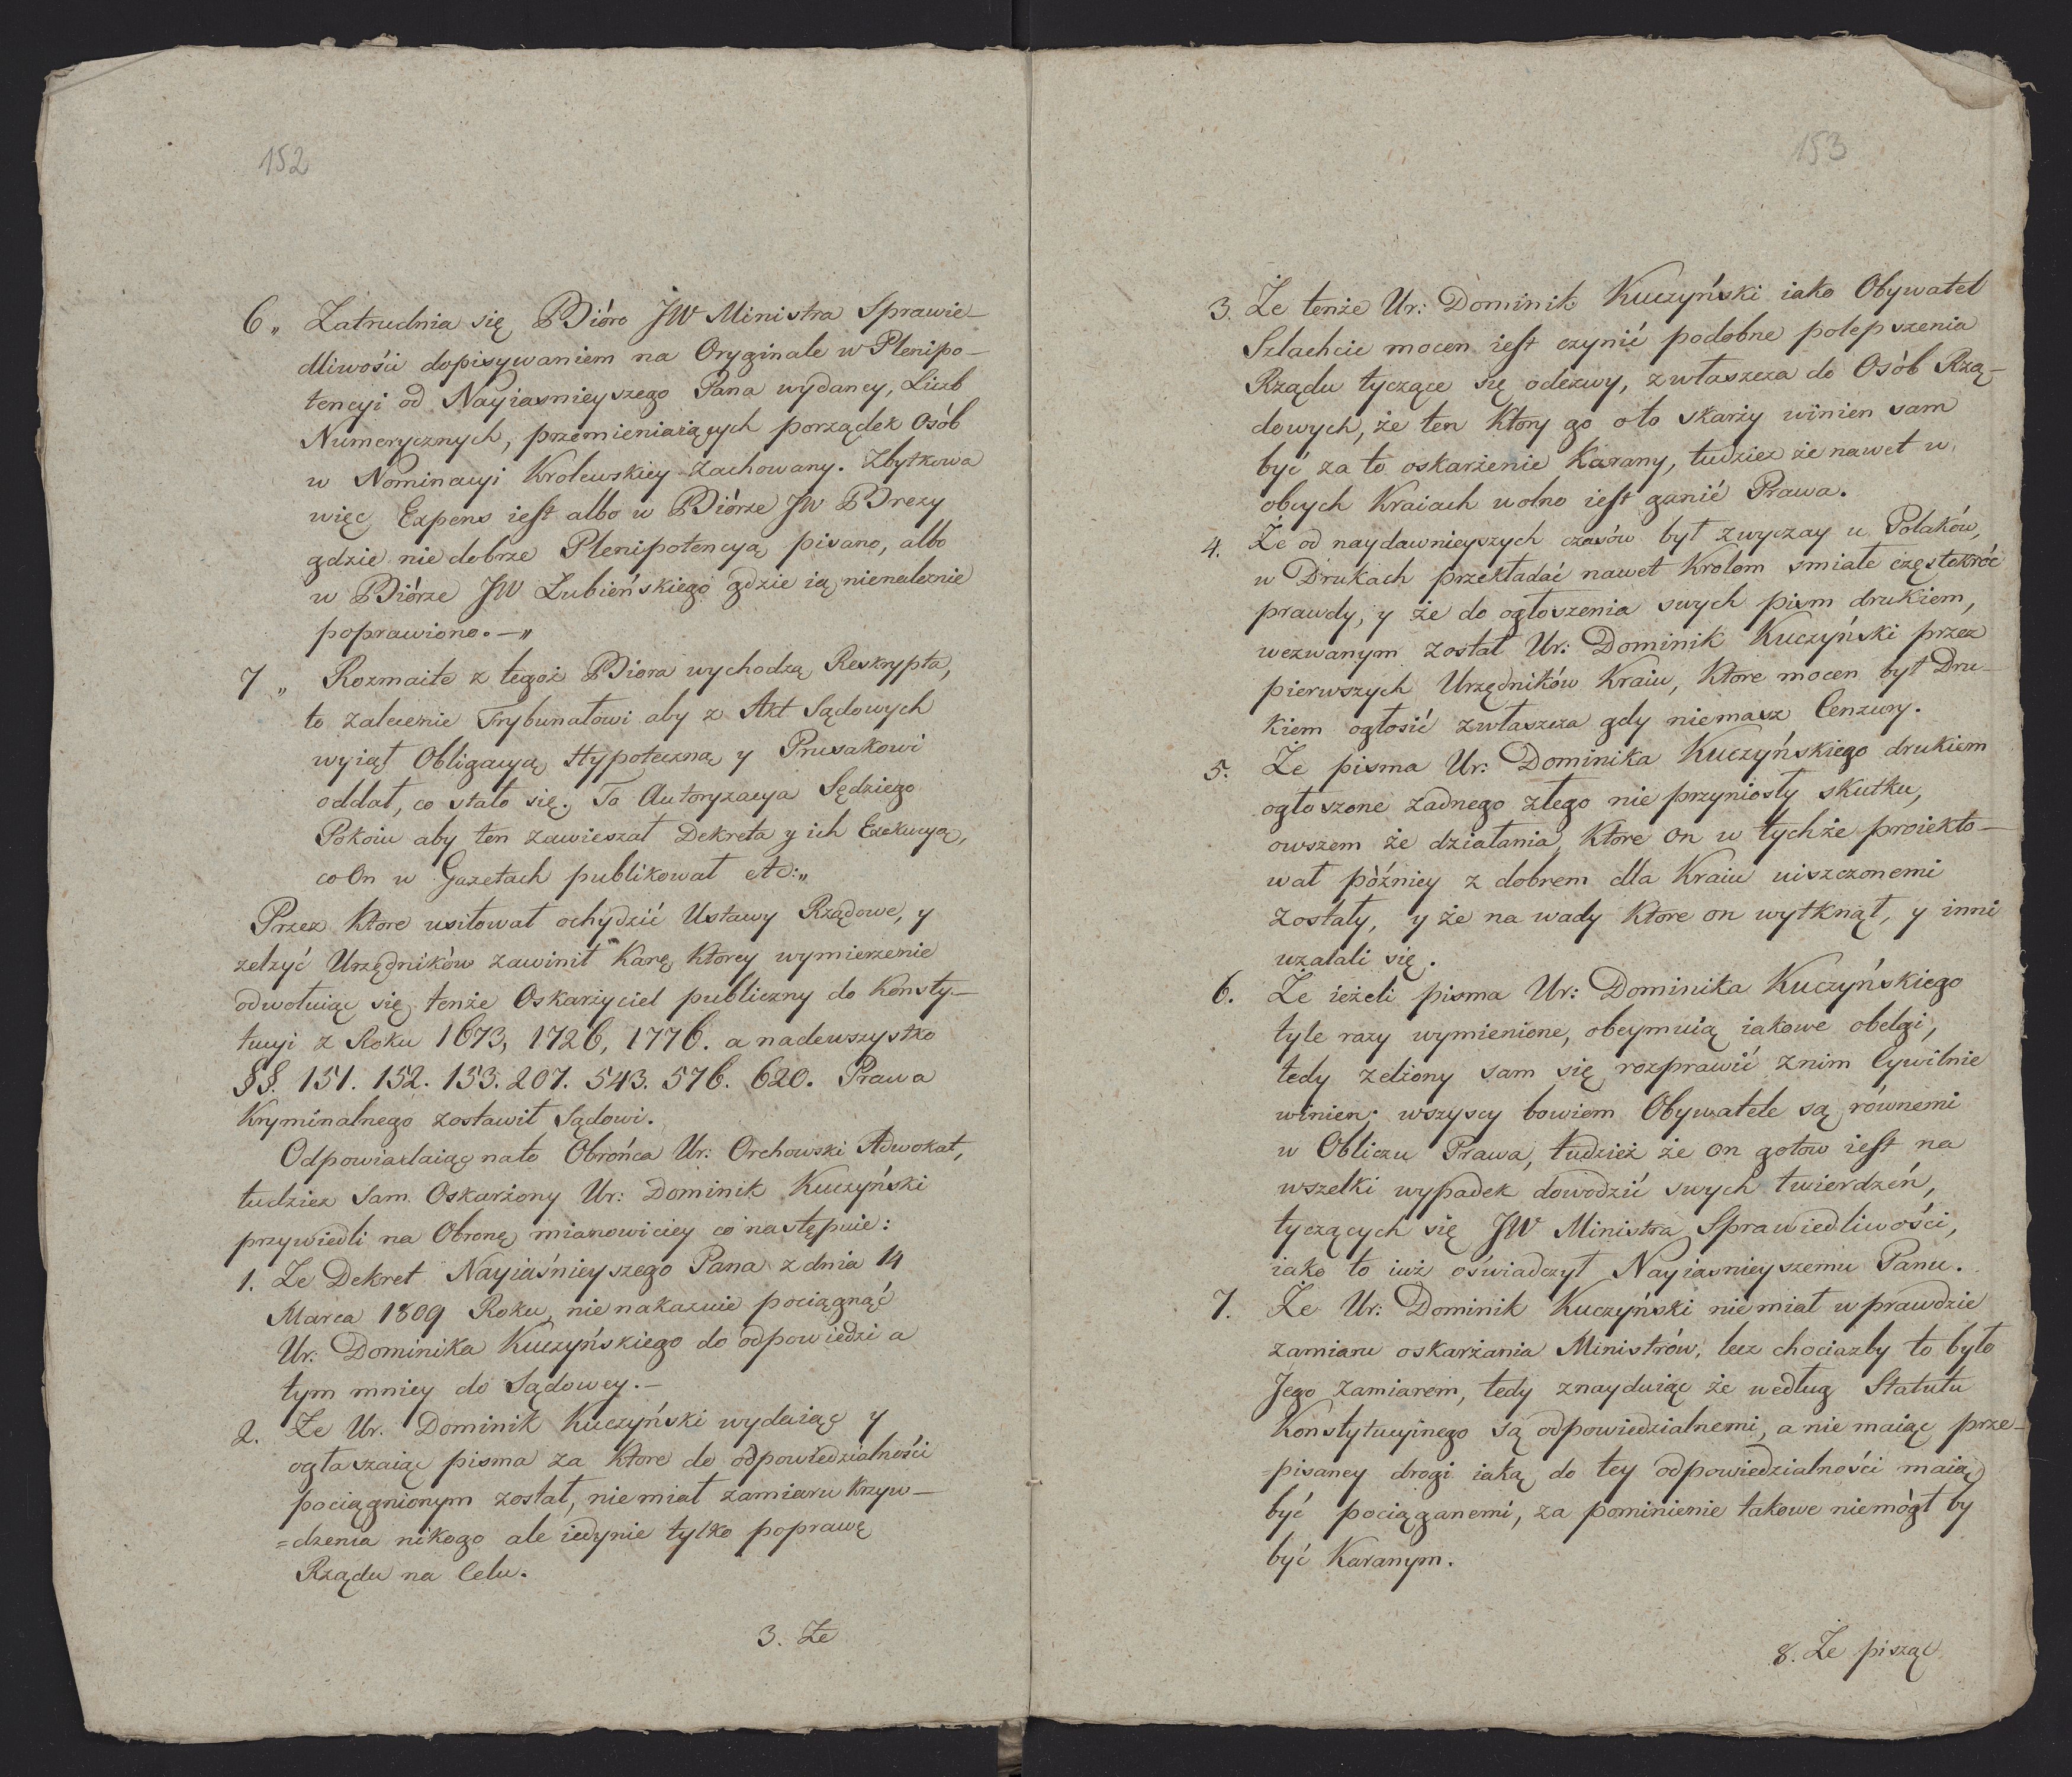 152
6„ Zatrudnia się Bióro JW Ministra Sprawie–
dliwości dopisywaniem na Oryginale w Plenipo–
tencyi od Nayiasnieyszego Pana wydaney, Liczb
Numerycznych, przemieniaiących porządek Osób
w Nominacyi Krolewskiey zachowany. Zbytkowa
więc Expens iest albo w Biórze JW Brezy
gdzie niedobrze Plenipotencyą pisano, albo
w Biórze JW Łubieńskiego gdzie ią nienależnie
poprawiono.–„
7 „ Rozmaite z tegoż Biora wychodzą Reskrypta,
to zalecenie Trybunałowi aby z Akt Sądowych
wyiął Obligacyą Hypoteczną y Prusakowi
oddał, co stało się. To Autoryzacya Sędziego
Pokoiu aby ten zawieszał Dekreta y ich Exekucyą,
co On w Gazetach publikował etc:„
Przez ktore usiłował ochydzić Ustawy Rządowe, y
zelżyć Urzędników zawinił karę ktorey wymierzenie
odwołuiąc się tenże Oskarżyciel publiczny do Konsty–
tucyi z Roku 1673, 1726, 1776. a nadewszystko
§§. 151. 152. 153. 207. 543. 576. 620. Prawa
Kryminalnego zostawił Sądowi.
Odpowiadaiąc nato Obrońca Ur: Orchowski Adwokat,
tudziez Sam Oskarżony Ur: Dominik Kuczyński
przywiedli na Obronę mianowiciey co następuie:
1. Ze Dekret Nayiaśnieyszego Pana z dnia 14
Marca 1809 Roku nienakazuie pociągnąć
Ur: Dominika Kuczyńskiego do odpowiedzi a
tym mniey do Sądowey.–
2. Ze Ur. Dominik Kuczyński wydaiąc y
ogłaszaiąc pisma za ktore do odpowiedzialności
pociągnionym został, niemiał zamiaru krzyw–
=dzenia nikogo ale iedynie tylko poprawę
Rządu na Celu.
3. Ze
153
3. Że tenże Ur: Dominik Kuczyński iako Obywatel
Szlachcic mocen iest czynić podobne polepszenia
Rządu tyczące się odezwy, zwłaszcza do Osób Rzą–
dowych, że ten ktory go oto skarży winien sam
być za to oskarżenie karany, tudzież że nawet w
obcych Kraiach wolno iest ganić Prawa.
4. Że od naydawnieyszych czasów był zwyczay u Polaków,
w Drukach przekładać nawet Krolom smiałe częstokróć
prawdy, y że do ogłoszenia swych pism drukiem,
wezwanym został Ur: Dominik Kuczyński przez
pierwszych Urzędników Kraiu, ktore mocen był Dru–
kiem ogłosić zwłaszcza gdy niemasz Cenzury.
5. Że pisma Ur: Dominika Kuczyńskiego drukiem
ogłoszone żadnego złego nie przyniosły skutku,
owszem że działania, ktore on w tychże proiekto–
wał późniey z dobrem dla Kraiu uiszczonemi
zostały, y że na wady ktore on wytknął, y inni
uzalali się.
6. Że ieżeli pisma Ur: Dominika Kuczyńskiego
tyle razy wymienione, obeymuią iakowe obelgi,
tedy zelżony sam się rozprawić z nim Cywilnie
winien; wszyscy bowiem Obywatele są równemi
w Obliczu Prawa, tudzież że on gotow iest na
wszelki wypadek dowodzić swych twierdzeń,
tyczących się JW Ministra Sprawiedliwości,
iako to iuż oświadczył Nayiasnieyszemu Panu.
7. Że Ur: Dominik Kuczyński niemiał wprawdzie
zamiaru oskarżania Ministrów, lecz chociazby to było
Jego zamiarem, tedy znayduiąc że według Statutu
Konstytucyinego są odpowiedzialnemi, a nie maiąc prze–
-pisaney drogi iaką do tey odpowiedzialności maią
być pociąganemi, za pominienie takowe niemógł by
być karanym.
8. Ze pisząc